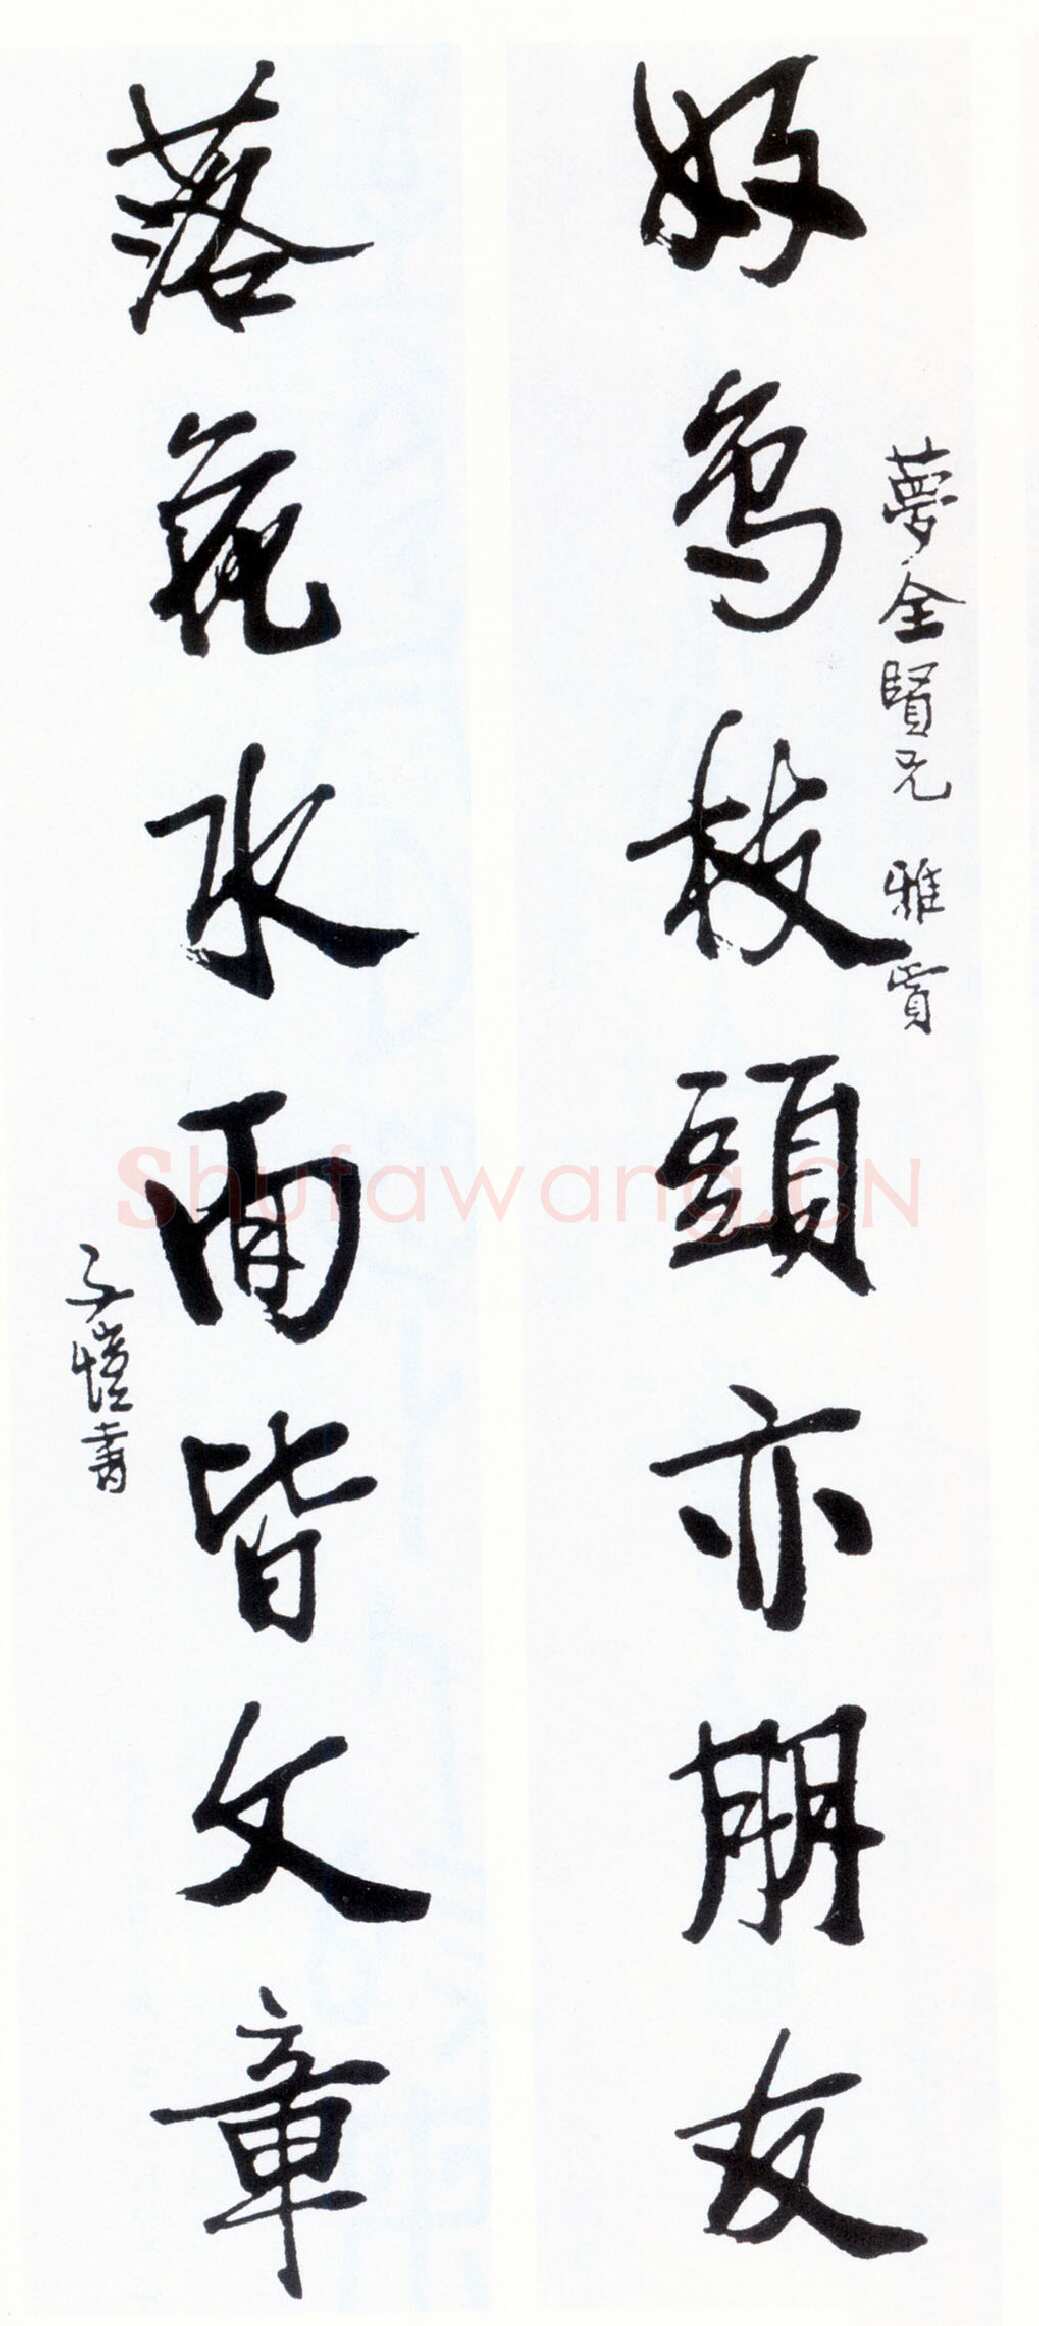 夢全賢兄 雅賞
好鳥枝頭亦朋友
落花水面皆文章
子愷書
Shufawang.CN